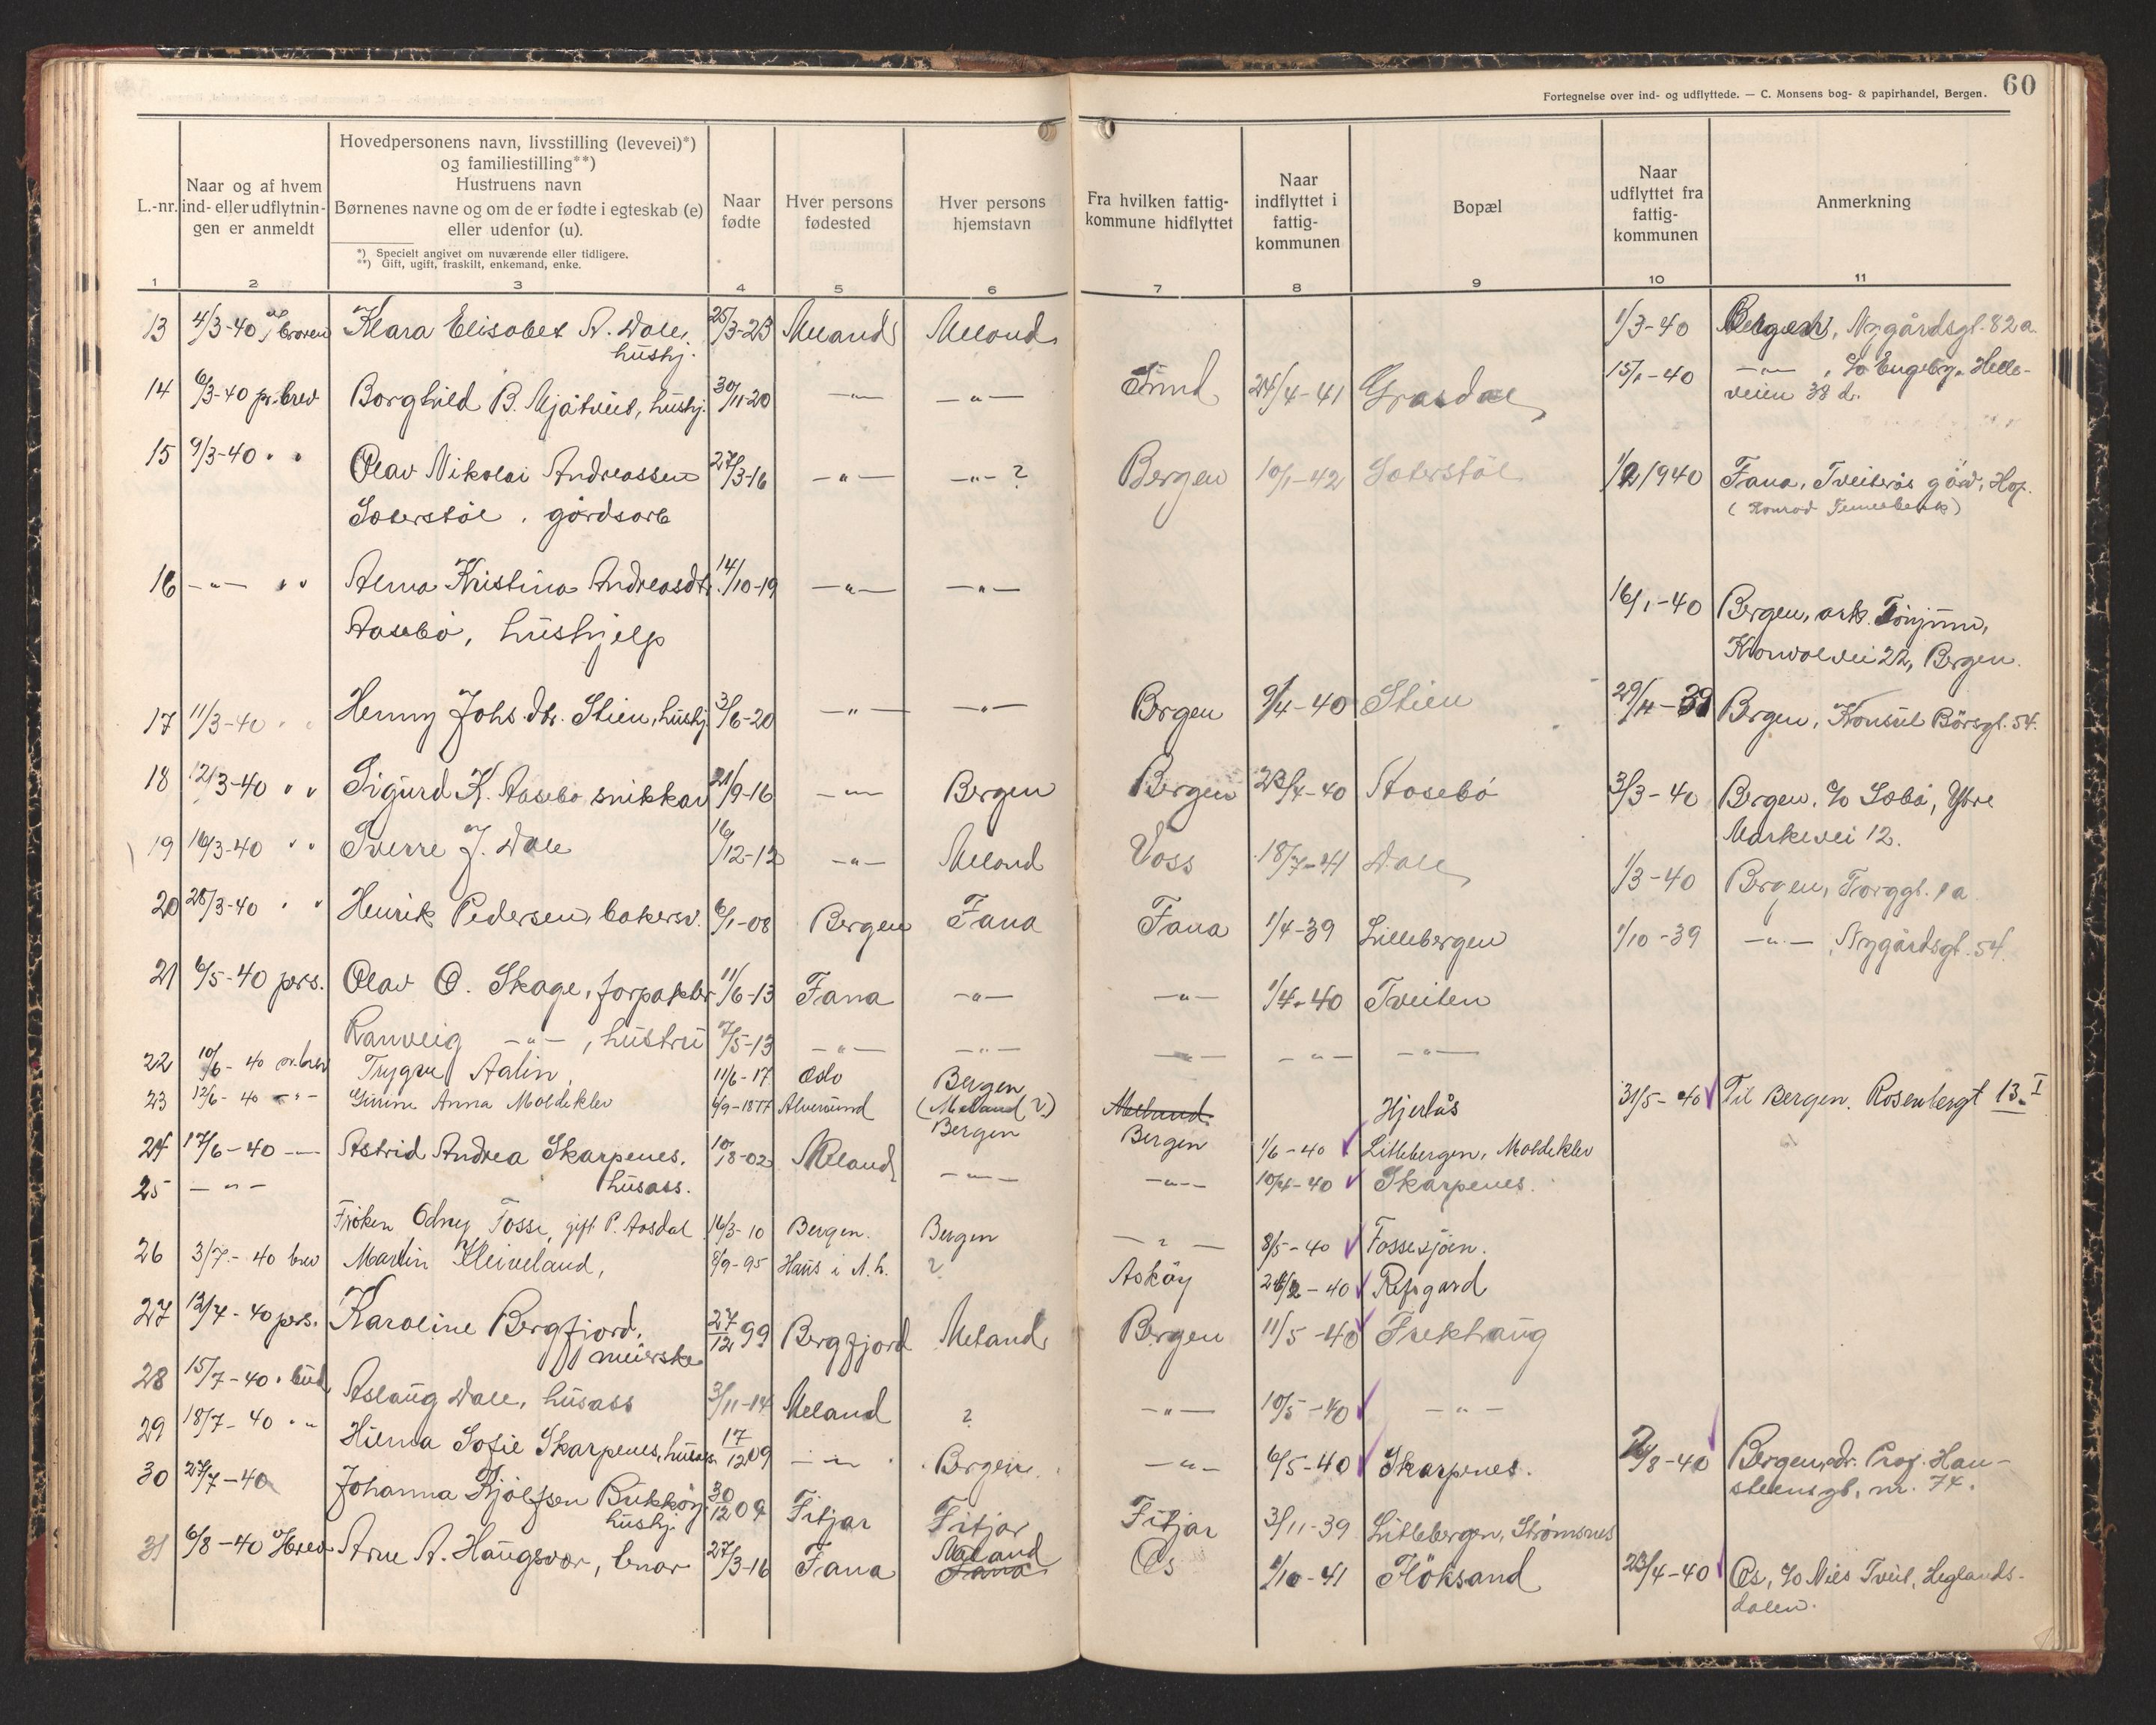 Fortegnelse over ind- og udflyttede. — C. Monsens bog- & papirhandel, Bergen. 60
L.-nr. Naar og af hvem ind- eller udflytningen er anmeldt
Hovedpersonens navn, livsstilling (levevei)*)
og familiestilling**)
Hustruens navn
Børnenes navne og om de er fødte i egteskab (e)
eller udenfor (u).
*) Specielt angivet om nuværende eller tidligere.
**) Gift, ugift, fraskilt, enkemand, enke.
Naar fødte
Hver persons fødested
Hver persons hjemstavn
Fra hvilken fattigkommune hidflyttet
Naar indflyttet i fattigkommunen
Bopæl
Naar udflyttet fra fattigkommunen
Anmerkning
1 2 3 4 5 6 7 8 9 10 11
13 4/3-40 Klara Elisabet A. Dale, 25/3-23 Meland Meland 1/3-40 Bergen, Nygårdsgt. 82a.
hushj.
14 6/3-40 pr. brev Borghild B. Mjåtveit, hushj. 30/11-20 —"— —"— Sund 24/4-41 Grasdal 15/1-40 —"—, c/o Engeby, Helle-
veien 38 d.
15 9/3-40 " " Olav Nikolai Andreassen 27/3-16 —"— —"— ? Bergen 10/1-42 Sæterstøl 1/2 1940 Fana, Tveiterås gård, Hop.
Sæterstøl, gårdsarb
16 —"— " " Alma Kristina Andreasdtr. 14/10-19 —"— —"— 16/1-40 Bergen, ark.
Aasebø, hushjelp
22, Bergen.
17 11/3-40 " " Henny Johs.dtr. Stien, hushj. 3/6-20 —"— —"— Bergen 9/4-40 Stien 29/11-39 Bergen, Konsul Börsgt. 54.
18 12/3-40 " " Sigurd K. Aasebø snikkar 21/9-16 —"— Bergen Bergen 23/4-40 Aasebø 3/3-40 Bergen, c/o Sæbø, Ytre
Markevei 12.
19 16/3-40 " " Sverre J. Dale 16/12-12 —"— Meland Voss 18/7-41 Dale 1/3-40 Bergen, Torggt. 1a.
20 28/3-40 " " Henrik Pedersen, bakersv. 6/1-08 Bergen Fana Fana 1/4-39 Lillebergen 1/10-39 —"—, Nygårdsgt. 54.
21 6/5-40 pers. Olav O. Skage, forpakter 11/6-13 Fana —"— —"— 1/4-40 Tveiten
Ranveig —"—, hustru 7/5-13 —"— —"— —"— —"— —"—
22 10/6-40 pr. brev Trygve Aalin, 11/6-17 Oslo Bergen Meland Hjertås 31/5-40 Til Bergen. Rosenbergt 13. I
23 12/6-40 —"— Gurine Anna Moldeklev 6/9-1877 Alversund (Meland?)
Bergen Bergen 1/6-40 Littlebergen, Moldeklev
24 17/6-40 —"— Astrid Andrea Skarpenes, 10/8-02 Meland —"— —"— 10/4-40 Skarpenes.
husass.
25 —"— Frøken Odny Fosse, gift P. Aasdal 16/3-10 Bergen. Bergen —"— 8/5-40 Fossesjøen.
26 3/7-40 brev Martin Kleiveland, 8/9-95 Haus i N.h. ? Askøy 24/2-40 Refsgard
27 12/7-40 pers. Karoline Bergfjord, 27/12 99 Bergfjord Meland Bergen 11/5-40 Frekhaug
meierske
28 15/7-40 " bud Aslaug Dale, husass 3/11-14 Meland ? —"— 10/5-40 —"—
29 18/7-40 " " Hilma Sofie Skarpenes, husass. 17/12 09 —"— Bergen. —"— 6/5-40 Skarpenes. /8-40 Bergen, adr. Prof. Han-
steensgt. nr. 74.
30 27/7-40 Johanna Kjölfsen Bukkøy 30/12 04 Fitjar Fitjar Fitjar 3/11-39 Littlebergen, Strømsnes
hushj.
31 6/8-40 brev Arne A. Haugsvær, lærar 27/3-16 Fana Meland Os 1/10-41 Flöksand 23/4-40 Os, c/o Nils Tveit,
Fana
dalen.